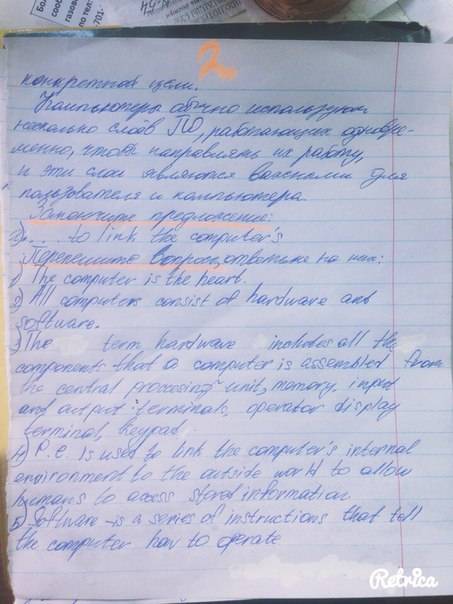 2
конкретной цели.
Компьютеры обычно используют
несколько слоёв ПО, работающих одновре-
менно, чтобы направлять их работу,
и эти слои являются важными для
пользователя и компьютера.
Закончите предложение:
2) ... to link the computer's
Перепишите вопрос, ответьте на них:
1) The computer is the heart.
2) All computers consist of hardware and
software.
3) The term hardware includes all the
components that a computer is assembled from
the central processing unit, memory, input
and output terminals, operator display
terminal, keypad.
4) P.E. is used to link the computer's internal
environment to the outside world to allow
humans to access stored information
5) Software is a series of instructions that tell
the computer how to operate
Retrica